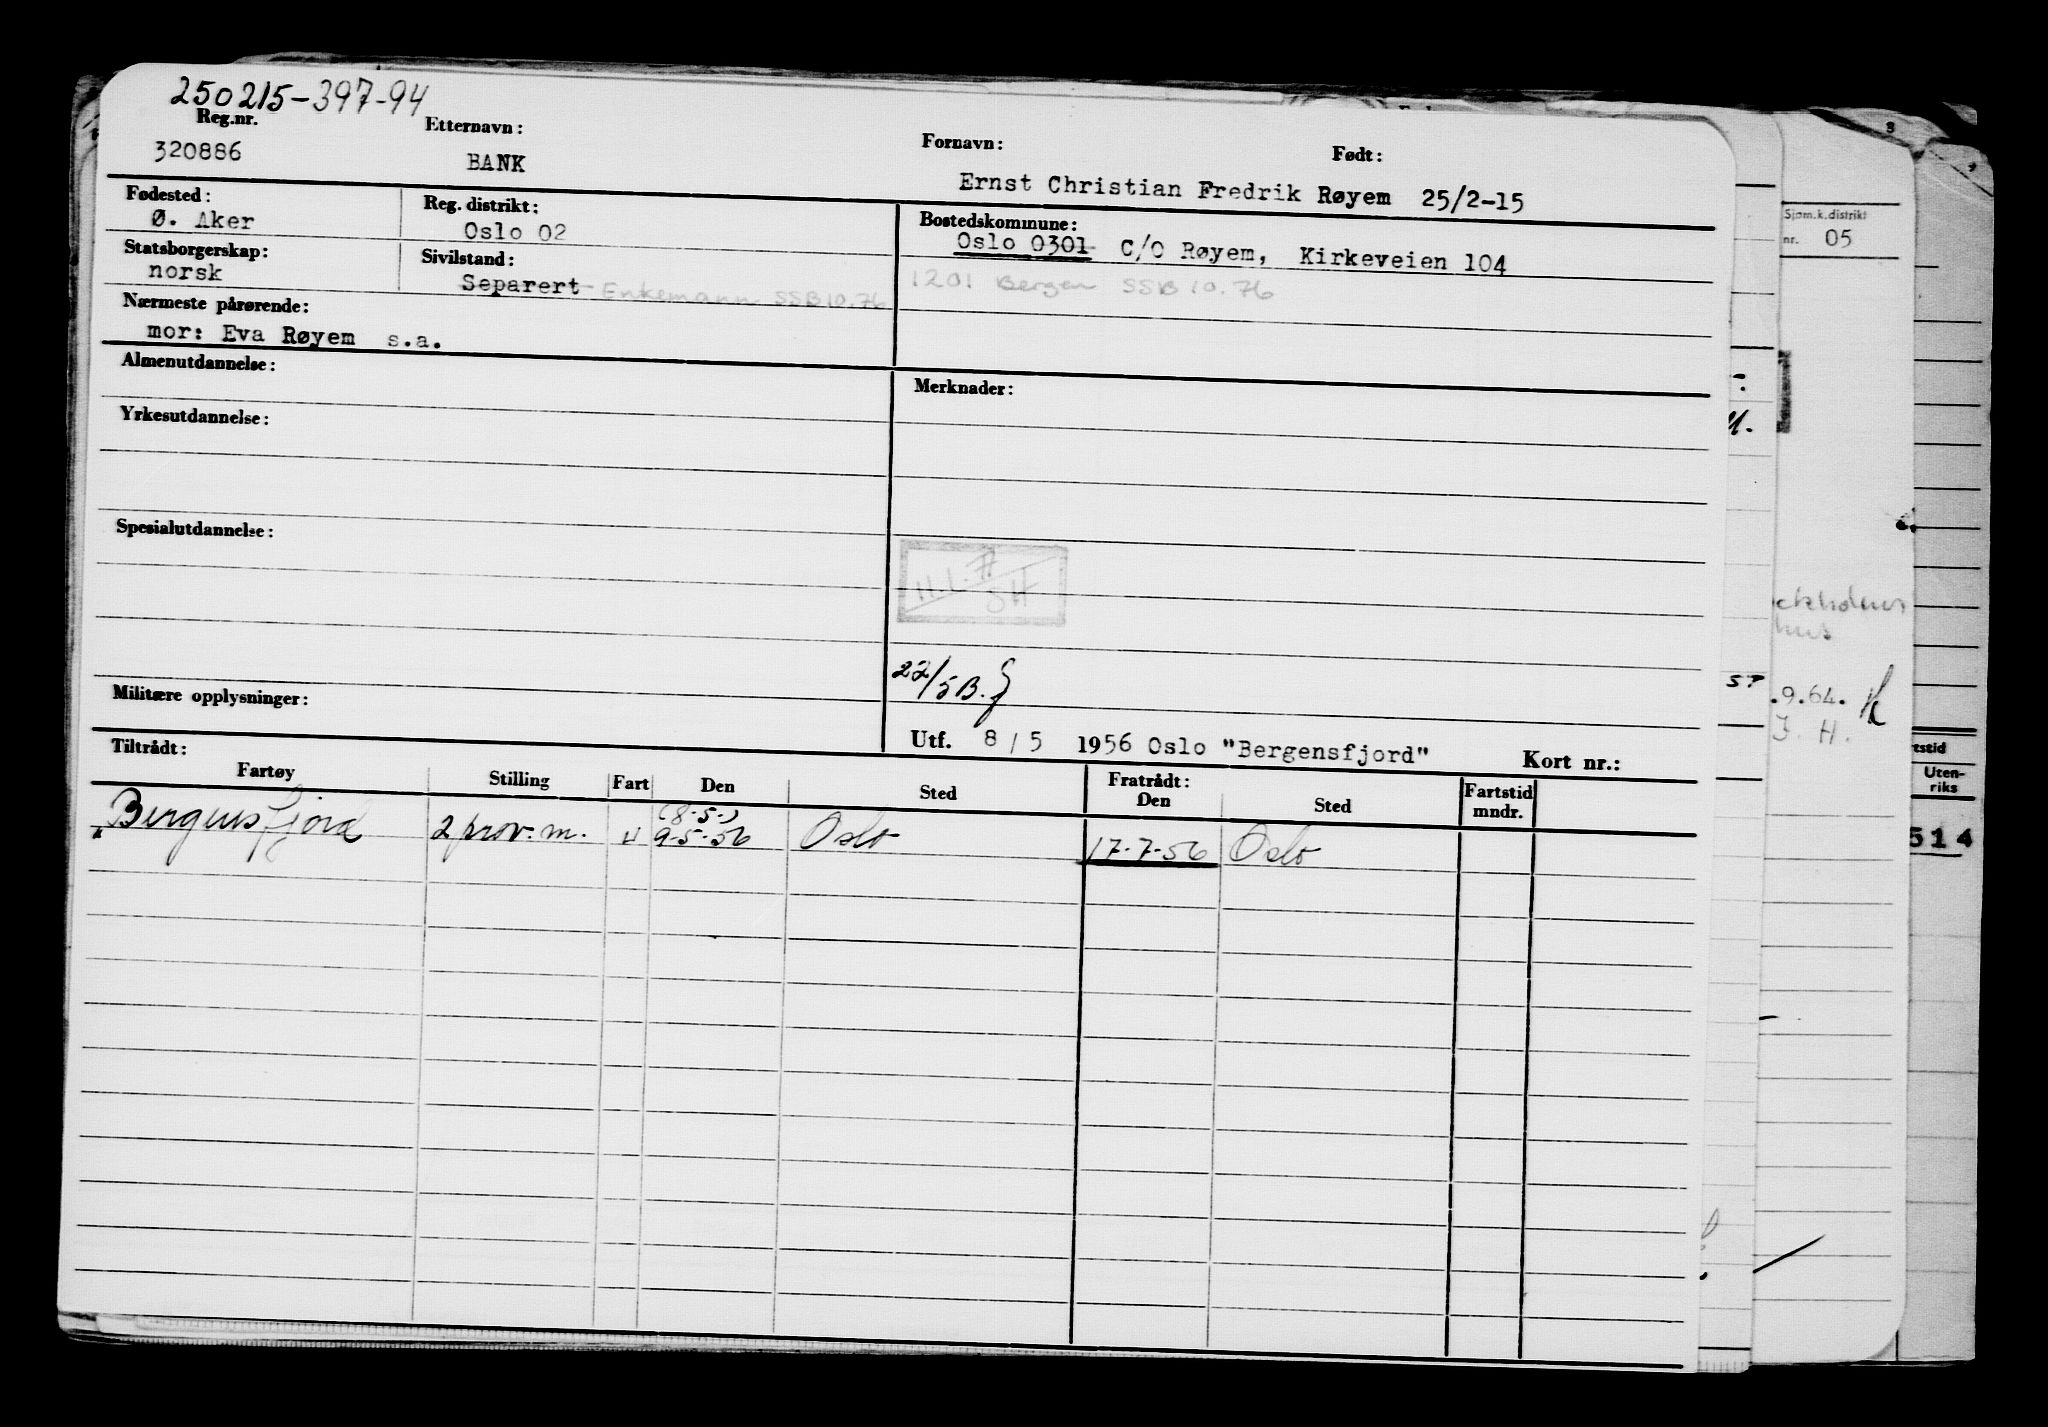 250215-397-94
Reg.nr. Etternavn: Fornavn: Født:
320886 BANK Ernst Christian Fredrik Røyem 25/2-15
Fødested: Reg. distrikt: Bostedskommune:
Ø. Aker Oslo 02 Oslo 0301 C/O Røyem, Kirkeveien 104
Statsborgerskap: Sivilstand:
norsk Separert Enkemann SSB 10.76 1201 Bergen SSB 10.76
Nærmeste pårørende:
mor: Eva Røyem s.a.
Almenutdannelse: Merknader:
Yrkesutdannelse:
Spesialutdannelse:
22/5 B.
Militære opplysninger:
Utf. 8/5 1956 Oslo "Bergensfjord" Kort nr.:
Tiltrådt: Fratrådt:
Fartøy Stilling Fart Den Sted Den Sted Fartstid mndr.
(8.5.)
Bergensfjord 2 prov. m. U 9-5-56 Oslo 17.7-56 Oslo
8
Sjøm.k.distrikt
nr. 05
.9.64. K
J. H.
57
Uten-
riks
514